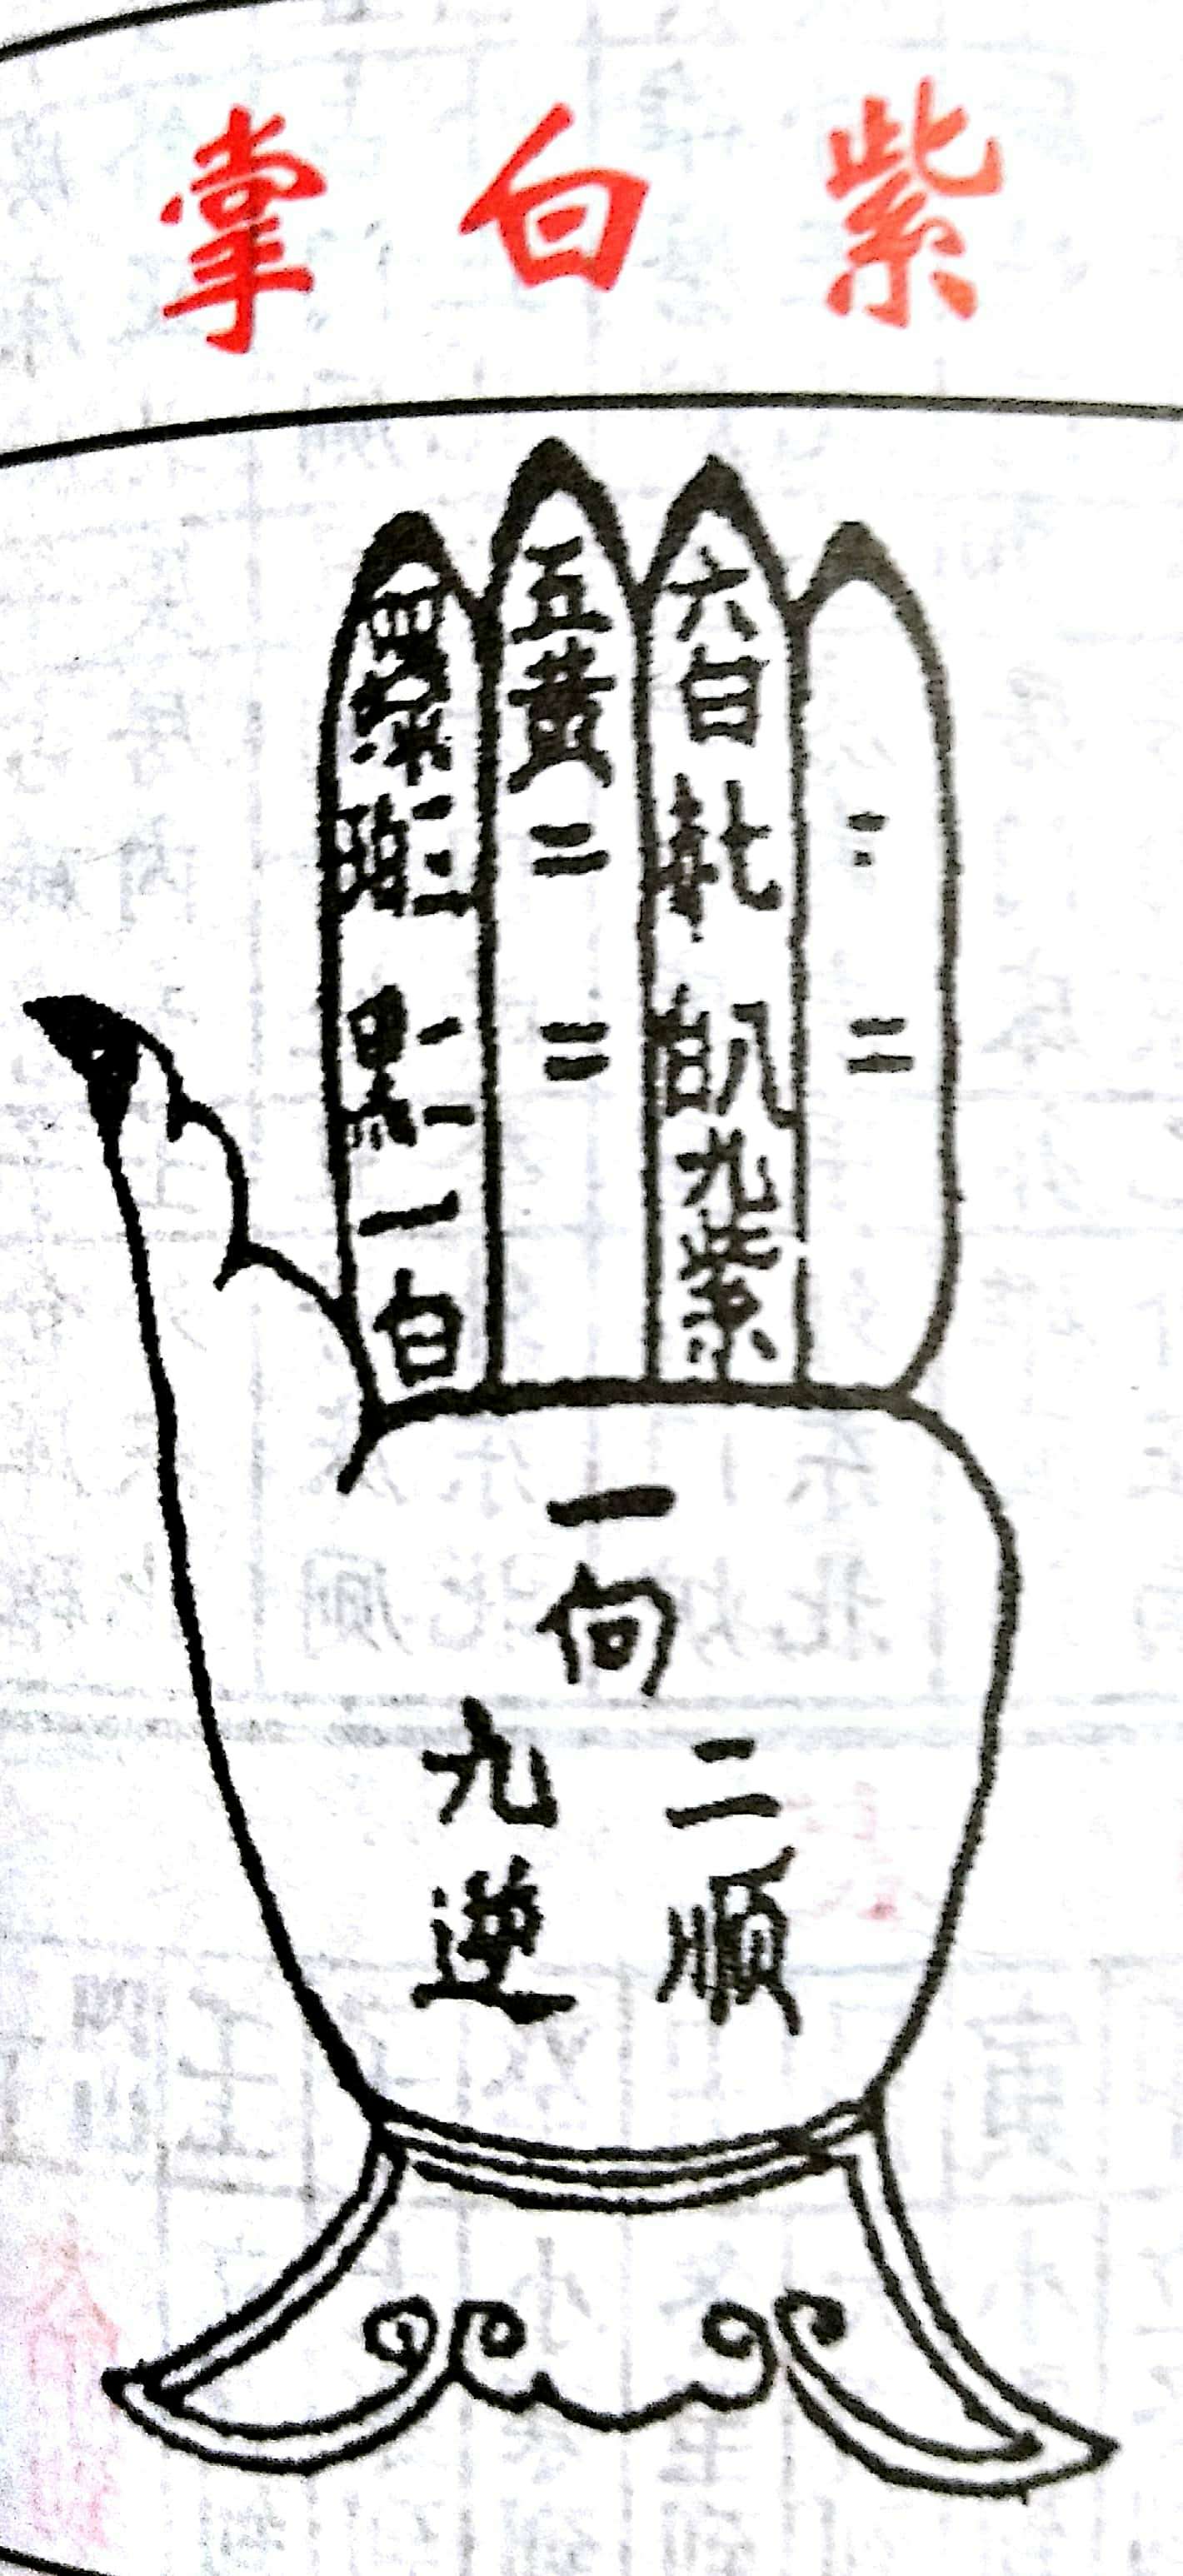 紫白掌
四綠
三碧
二黑
一白
五黃
六白
七赤
八白
九紫
一向
二順
九逆